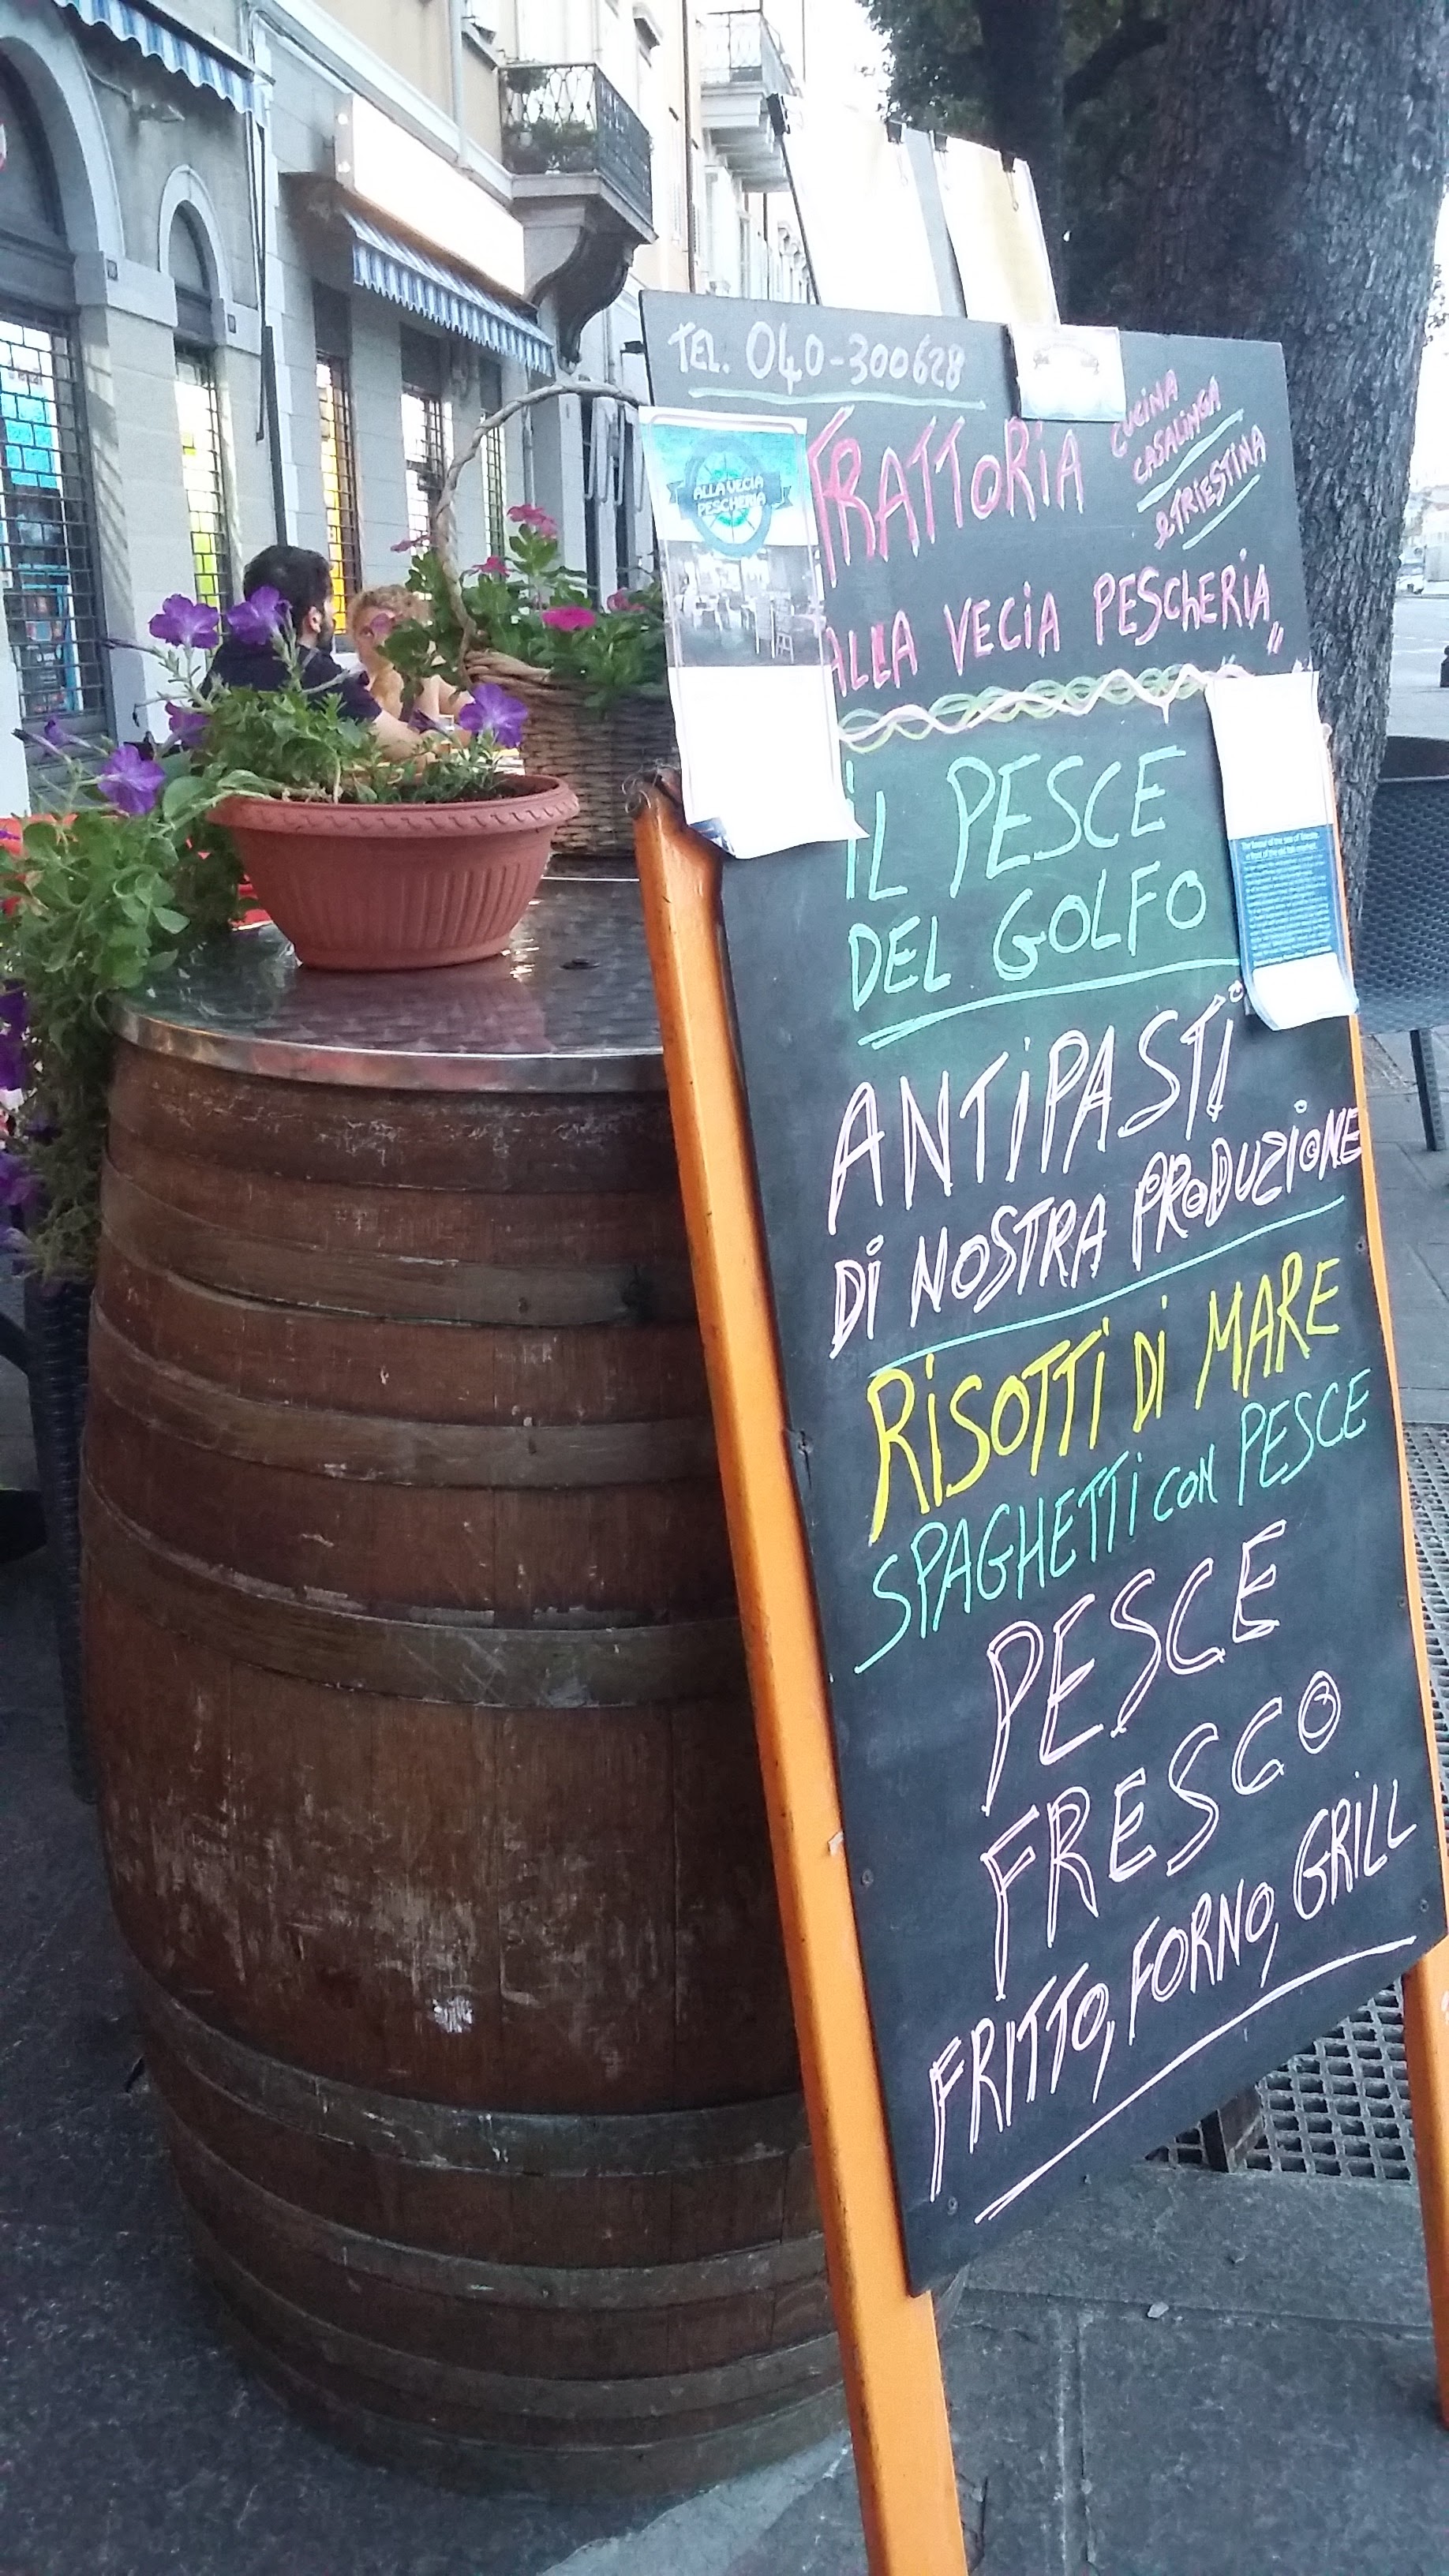 TEL. 040-300628
TRATTORIA
CUCINA
CASALINGA
& TRIESTINA
ALLA VECIA PESCHERIA"
ALLA VECIA
PESCHERIA
IL PESCE
DEL GOLFO
ANTIPASTI
DI NOSTRA PRODUZIONE
RISOTTI DI MARE
SPAGHETTI CON PESCE
PESCE
FRESCO
FRITTO, FORNO, GRILL